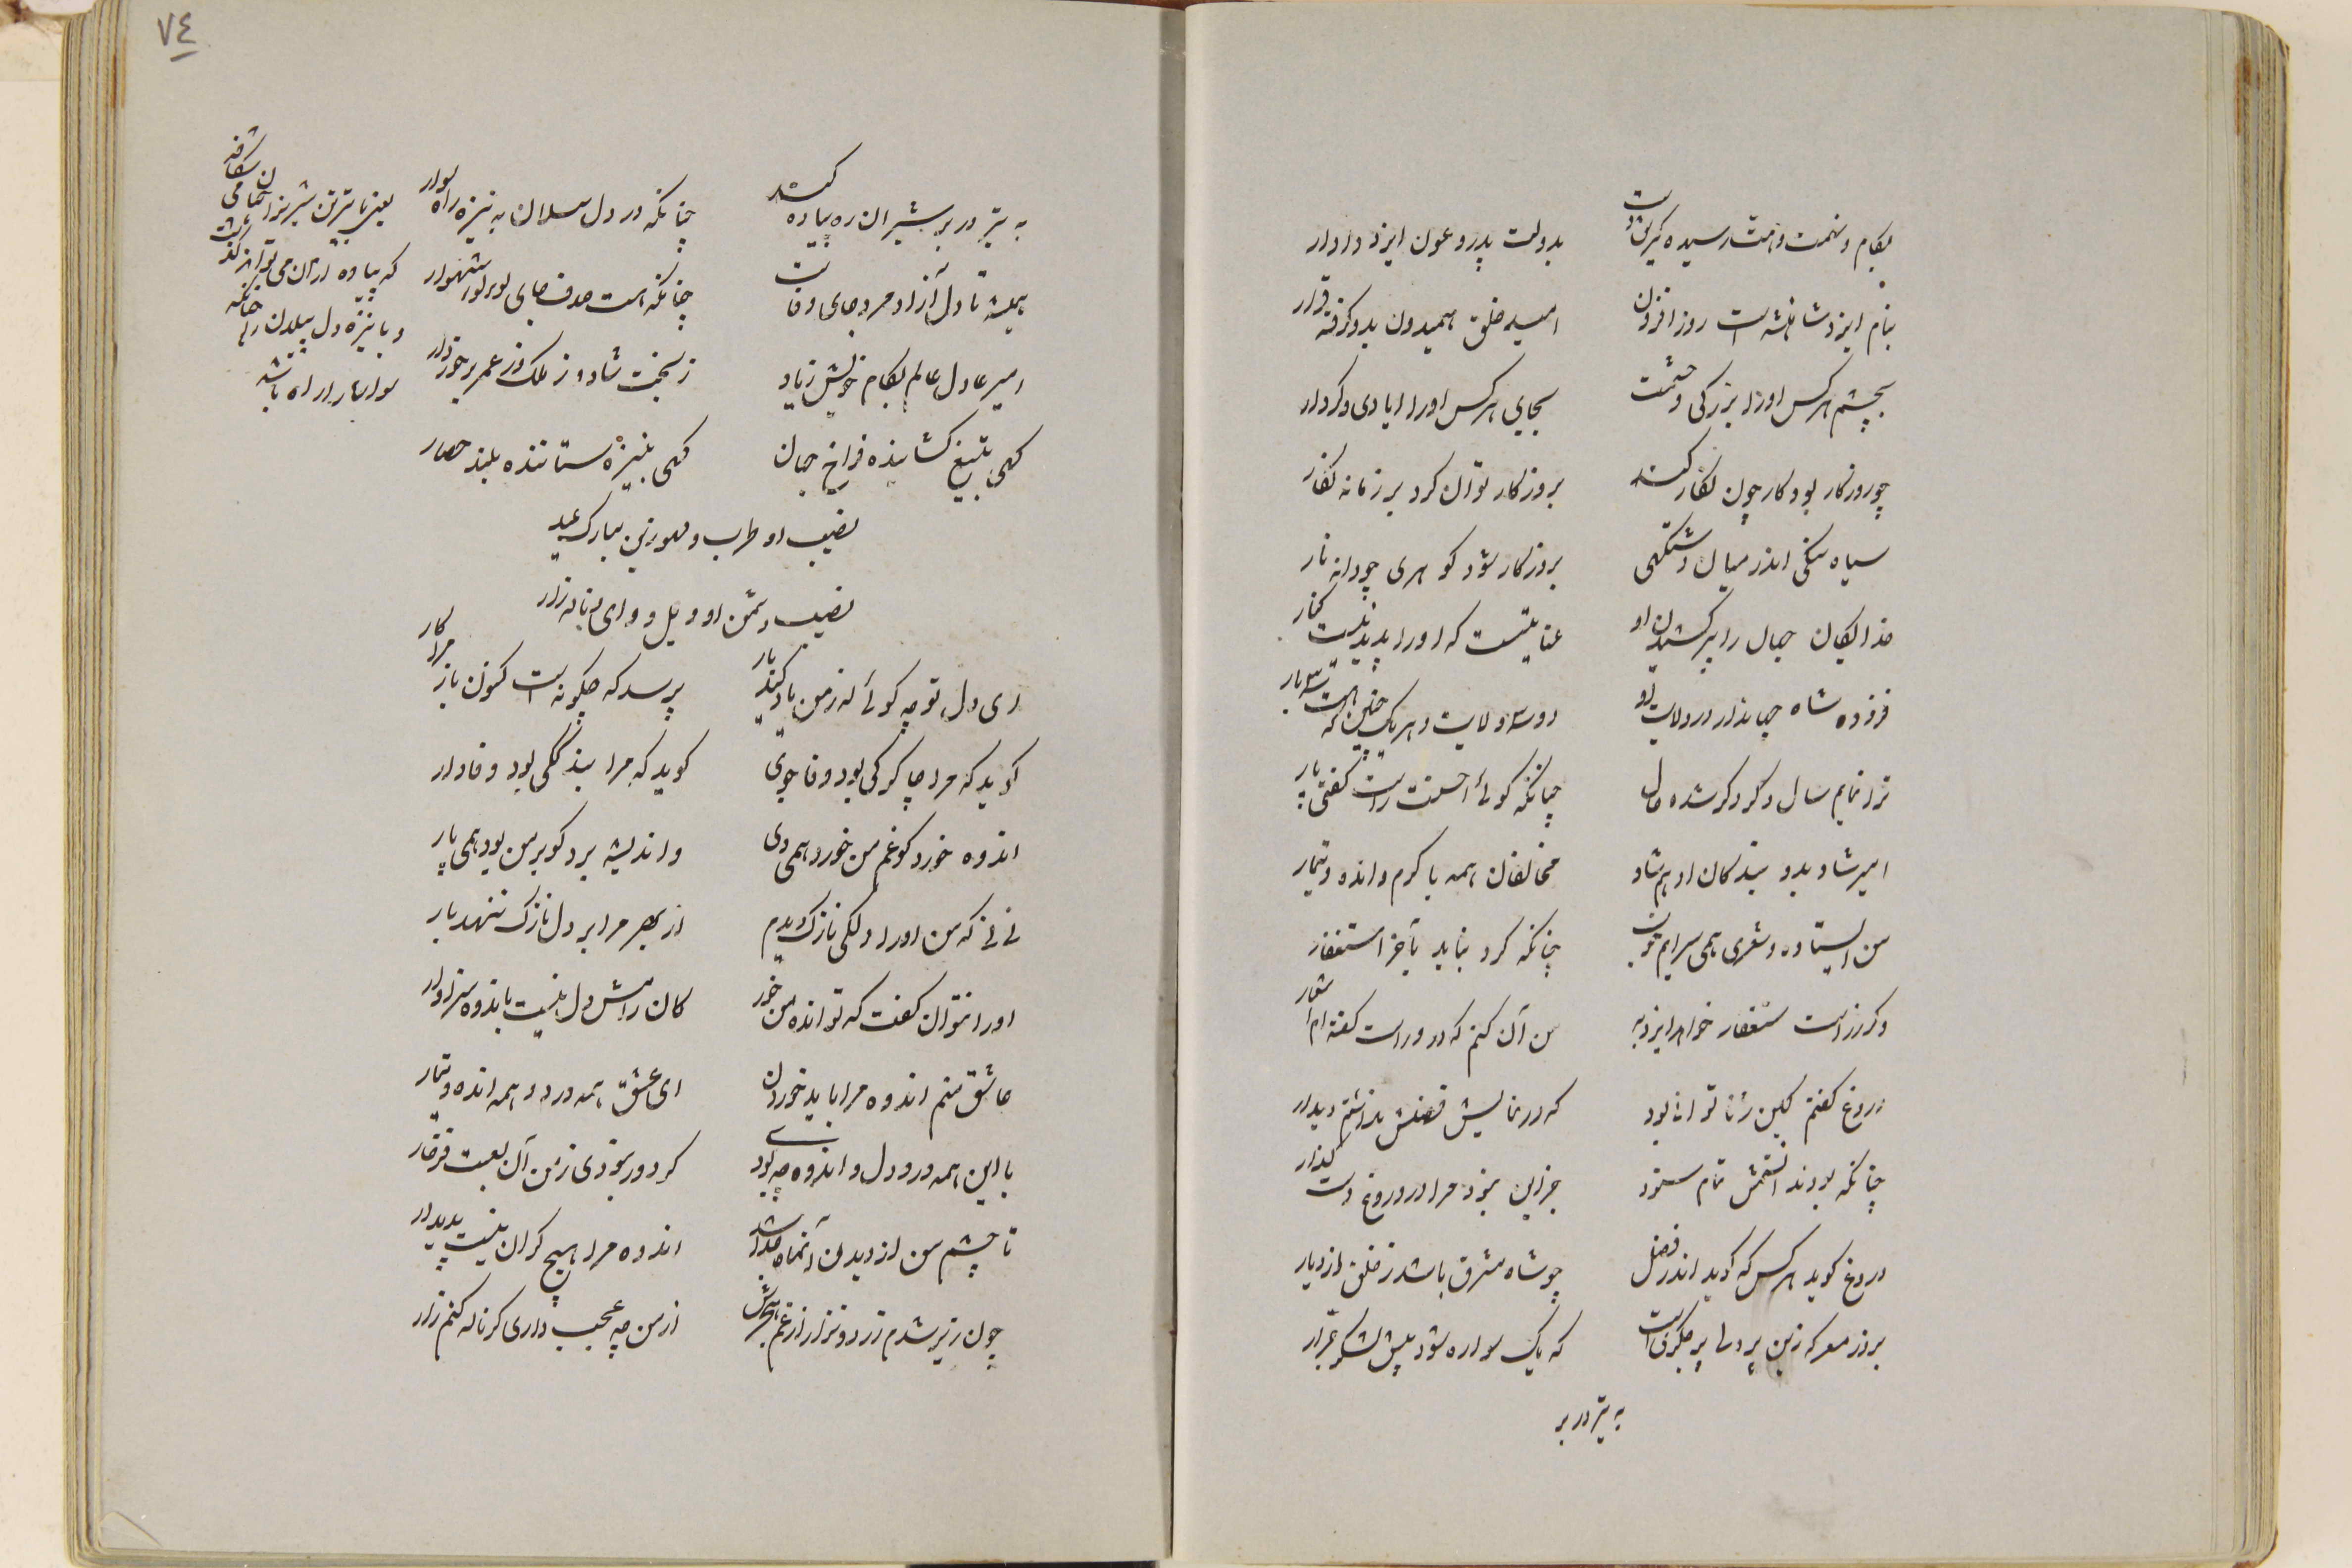 بکام و نهمت و امت رسیده گیر که هست بدولت پدر و عون ایزد دادار
بنام ایزد شاهنشه است روزافزون امید خلق همیدون بدو گرفته قرار
بچشم هر کس اورا بزرگی و حشمت بجای هر کس اورا ایادی و کردار
چو روزگار بود کار چون نگار کند بروزگار توان کرد بر زمانه نگار
سیاه سنگی اندر میان دشت گهی بروزگار شود گوهری چو دانه نار
خدایگان جهان را بپرکشیدن او عنایتیست که اورا پدید نیست کنار
فزوده شاه جهاندار در ولایت او دو سه ولایت و هر یک چنین که هست سه بار
ترا نمایم سال دگر دگر شده حال چنانکه گوئی احسنت راست گفتی پار
امیر شاد بدو بندگان او هم شاد مخالفان همه با گرم و انده و تیمار
من ایستاده و شعری همی سرایم خوب چنانکه کرد نباید بآخر استغفار
و گر ز راست ستغفار خواهد ایزد به من آن کنم که در و راست گفته‌ام اشعار
دروغ گفتم لیکن نه از توانا بود که در نمایش فضلش بداشتم دیدار
چنانکه بودند انستمش تمام ستود جز این نبود مرا در دروغ دست گذار
دروغ گوید هر کس که گوید اندر فضل چو شاه مشرق باشد ز خلق از دیار
بروز معرکه زین پر دل پر جگری است که یک سواره شود پیش لشکر جرار
به تیر در بر
٧٤
به تیر در بر شیران ره پیاده کند چنانکه در دل پیلان به نیزه راه سوار
همیشه تا دل آزاد مرد جای وفاست چنانکه هست صدف جای لولو شهوار
امیر عادل عالم بکام خویش زیاد ز بخت شاد و ز ملک و ز عمر برخوردار
گهی بتیغ گشاینده فراخ جهان گهی بنیزه ستاننده بلند حصار
نصیب او طرب و لهو زین مبارک عید
نصیب دشمن او ویل و وای و ناله زار
یعنی با تیر تن شیر نر را چنان می شکافد
که پیاده از آن می تواند گذشت
و با نیزه دل پیلان را چنانکه
سوار را راه باشد
ای دل تو چه گوئی که ز من یاد کند یار پرسد که چگونه است کنون باز مرا کار
گوید که مرا چاکرکی بود وفا جوی گوید که مرا بندگکی بود وفادار
اندوه خورد کو غم من خورد همی دی و اندیشه برد کو بر من بود همی پار
نی نی که من اورا دلکی نازک دیدم از بهر مرا بر دل نازک ننهد بار
اورا نتوان گفت که تو انده من خور کان رامش دل نیست باندوه سزاوار
عاشق منم اندوه مرا باید خوردن ای عشق همه درد و همه انده و تیمار
با این همه درد دل و اندوه چه بودی گر دور نبودی ز من آن لعبت فرخار
تا چشم من از دیدن آن ماه جدا شد اندوه مرا هیچ کران نیست پدیدار
چون زیر شدم زرد و نزار از غم هجرش از من چه عجب داری گر ناله کنم زار